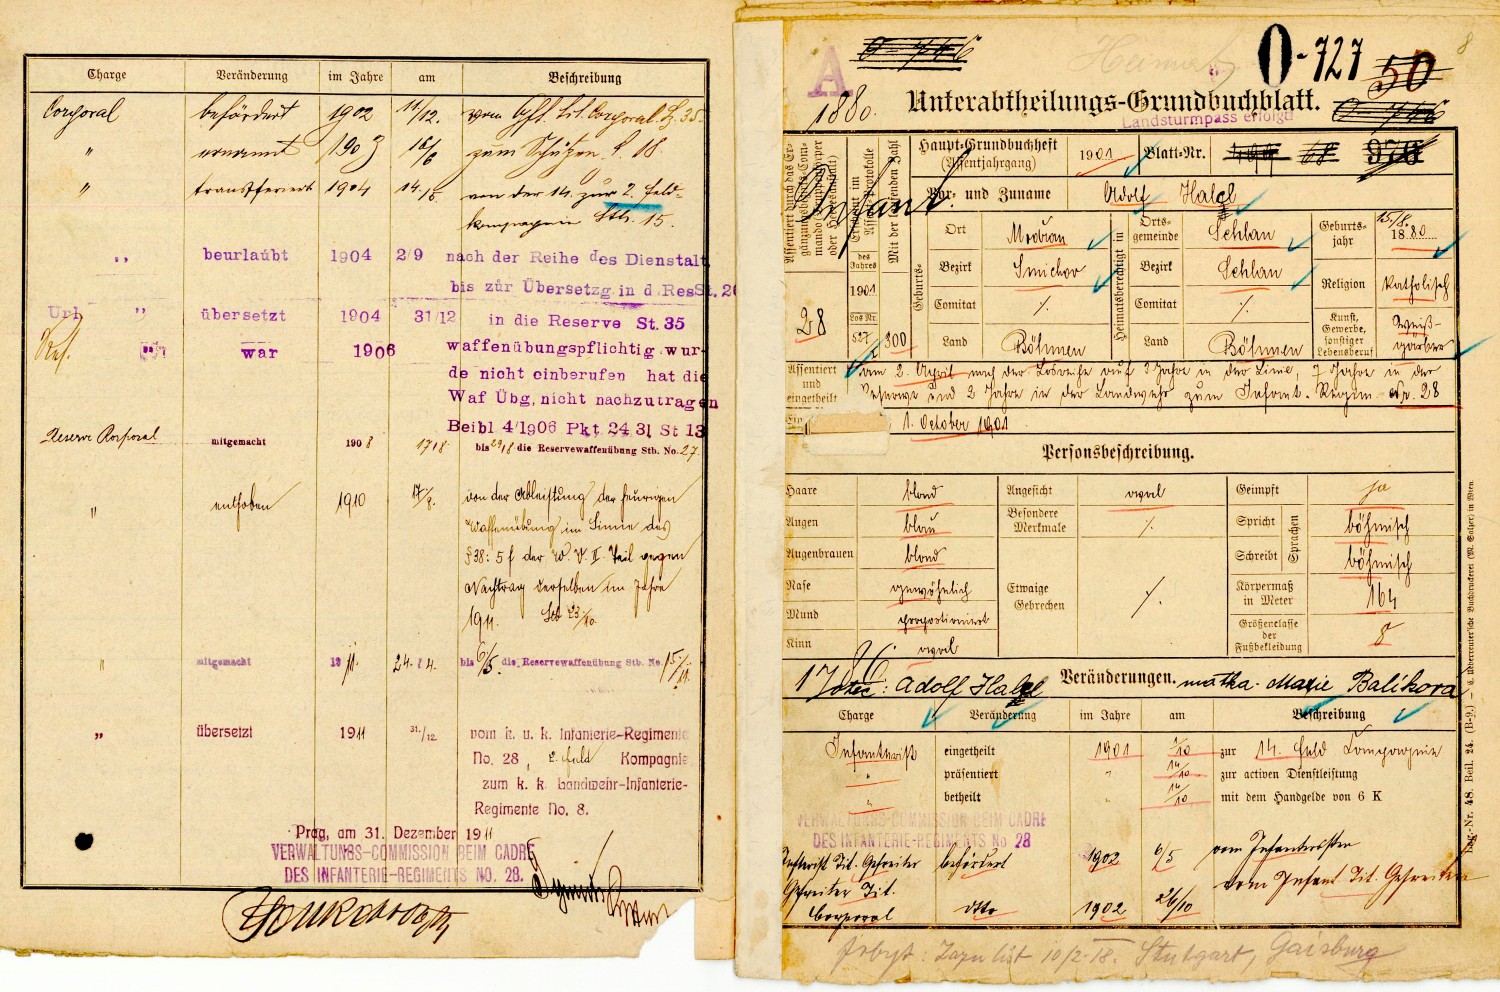 Charge Veränderung im Jahre am Beschreibung
Corporal befördert 1902 11/12. vom Gft. Tit. Corporal L. 35.
" ernannt 1903 16/6 zum Schützen L. 18
" transferiert 1904 14/5. von der 14. zur 2. Feld-
kompagnie Stb. 15.
" beurlaubt 1904 2/9 nach der Reihe des Dienstalt.
bis zur Übersetzg in d. Res St. 20
Url " übersetzt 1904 31/12 in die Reserve St. 35
Res. war 1906 waffenübungspflichtig wur-
de nicht einberufen hat die
Waf Übg, nicht nachzutragen
Beibl 4/1906 Pkt 24 31 St 13
Reserve Korporal mitgemacht 1908 17/8 bis 29/8 die Reservewaffenübung Stb. No. 27.
" enthoben 1910 17/8. von der Ableistung der heurigen
Waffenübung im Sinne des
§ 38: 5 f der W. V. II. Teil gegen
Nachtrag derselben im Jahre
1911. Stb 23/10.
" mitgemacht 1911. 24. 4. bis 6/5. die Reservewaffenübung Stb. No. 15/11.
" übersetzt 1911 31./12. vom k. u. k. Infanterie-Regimente
No. 28, 2. Feld Kompagnie
zum k. k. Landwehr-Infanterie-
Regimente No. 8.
Prag, am 31. Dezember 1911
VERWALTUNGS-COMMISSION BEIM CADRE
DES INFANTERIE-REGIMENTS NO. 28.
A 0-746 Heimat 0-727 50 8
1880. Unterabtheilungs-Grundbuchblatt. 0-746
Landsturmpass erfolgt
Haupt-Grundbuchheft
(Assentjahrgang) 1901 Blatt-Nr. 68 976
Vor- und Zuname Adolf Halel
Infant.
Assentiert durch das Ergänzungsbezirks-Commando (Truppenkörper oder Heeresanstalt) 28
Erscheint im Assent-Protokolle des Jahres 1901 Los Nr. 527
Mit der laufenden Zahl 300
Geburts-
Ort Modřan
Bezirk Smichov
Comitat ⁒
Land Böhmen
Heimatsberechtigt in
Ortsgemeinde Schlan
Bezirk Schlan
Comitat ⁒
Land Böhmen
Geburtsjahr 15./8. 1880
Religion katholisch
Kunst, Gewerbe, sonstiger Lebensberuf Weiß-
garber
Assentiert
und
eingetheilt am 2. April nach der Losreihe auf 3 Jahre in der Linie, 7 Jahre in der
Reserve und 2 Jahre in der Landwehr zum Infant. Regim. Nr. 28
1. October 1901
Personsbeschreibung.
Haare blond Angesicht oval Geimpft ja
Augen blau Besondere Merkmale ⁒ Spricht böhmisch
Augenbrauen blond Schreibt böhmisch
Sprachen
Nase gewöhnlich Etwaige Gebrechen ⁒ Körpermaß in Meter 164
Mund proportioniert Größenclasse der Fußbekleidung 8
Kinn oval
17/86
Otec: Adolf Halel Veränderungen. matka. Marie Balíkova
Charge Veränderung im Jahre am Beschreibung
Infanterist eingetheilt 1901 1/10 zur 14. Feld Compagnie
" präsentiert " 14/10 zur activen Dienstleistung
" betheilt " 14/10 mit dem Handgelde von 6 K
VERWALTUNGS-COMMISSION BEIM CADRE
DES INFANTERIE-REGIMENTS No 28
Inftrist Tit. Gefreiter befördert 1902 6/5 vom Infanteristen
Gefreiter Tit.
Corporal dtto 1902 26/10 vom Infant. Tit. Gefreiten
10/2. 18. Stuttgart, Gaisburg
Lag.-Nr. 48. Beil. 24. (B-9.)